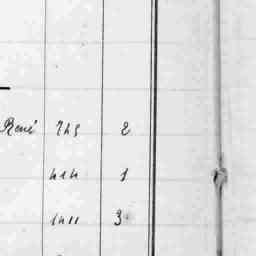 René 745 2
414 1
1411 3